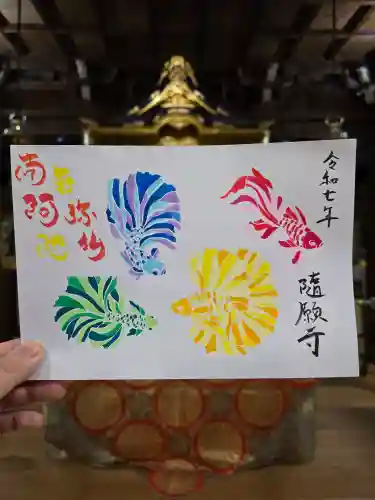 令和七年
隨願寺
南无
阿弥
陀仏